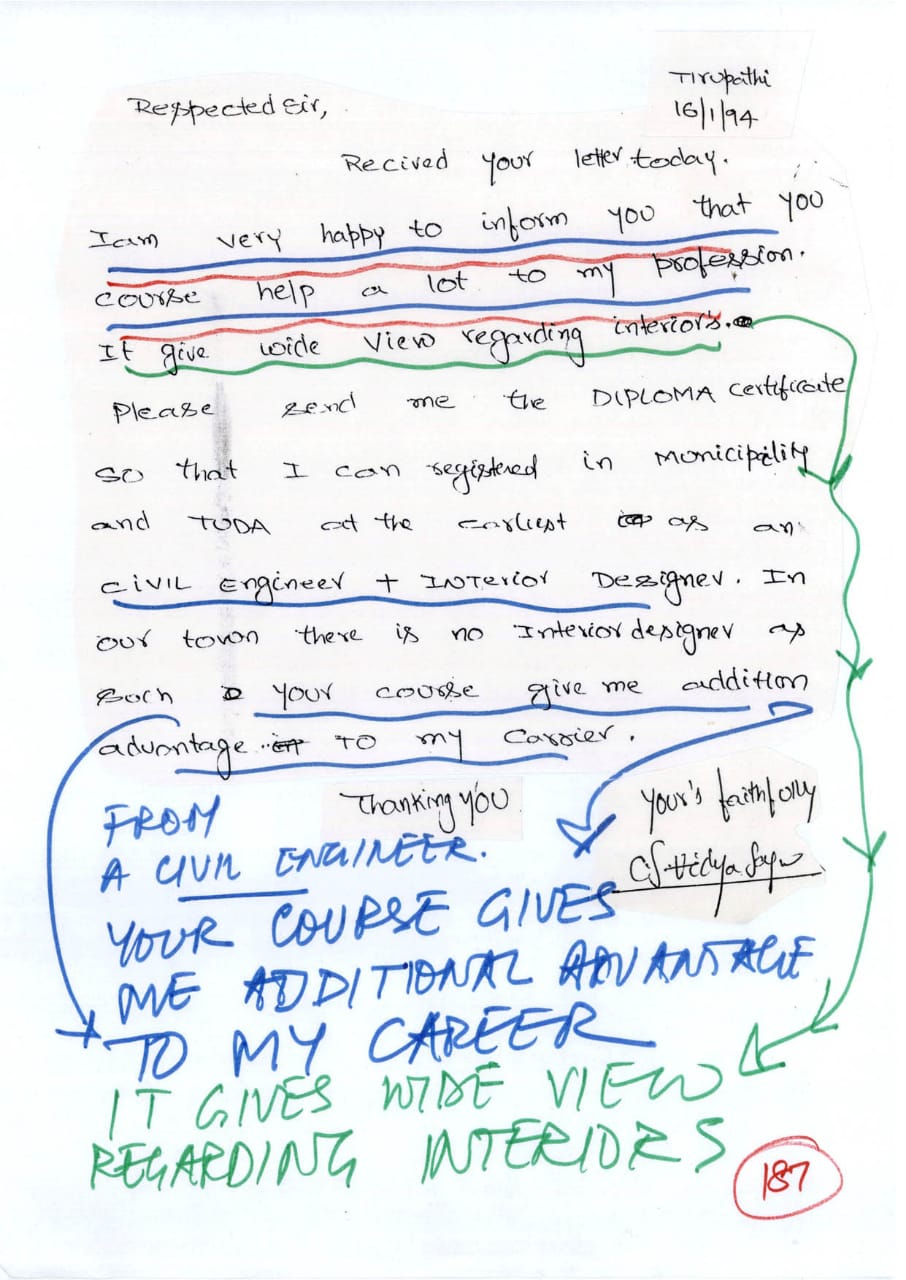 Tirupathi
16/1/94
Respected Sir,
Recived your letter today.
I am very happy to inform you that you
course help a lot to my profession.
It give wide view regarding interior's.
Please send me the DIPLOMA certificate
so that I can registered in Municipality
and TUDA at the earliest as an
CIVIL Engineer + INTerior Designer. In
our town there is no Interior designer as
such your course give me addition
advantage to my Carrier.
Thanking you
Your's faithfully
FROM
A CIVIL ENGINEER.
YOUR COURSE GIVES
ME ADDITIONAL ADVANTAGE
TO MY CAREER
IT GIVES WIDE VIEW
REGARDING INTERIORS
187